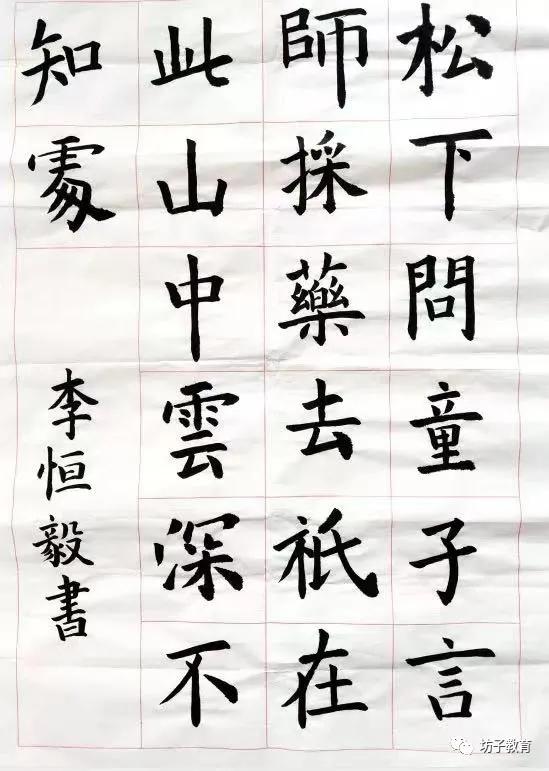 松下問童子言
師採藥去祇在
此山中雲深不
知處
李恒毅書
坊子教育